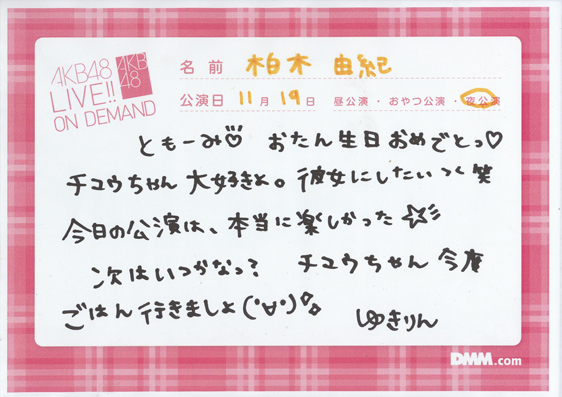 AKB48
LIVE!!
ON DEMAND
AKB
48
名前 柏木 由紀
公演日 11月19日 昼公演・おやつ公演・夜公演
ともーみ♡ おたん生日おめでとっ♡
チユウちゃん大好きよ。彼女にしたいっく笑
今日の公演は、本当に楽しかった☆彡
次はいつかなっ? チユウちゃん今度
ごはん行きましょ(°∀°)
ゆきりん
DMM.com